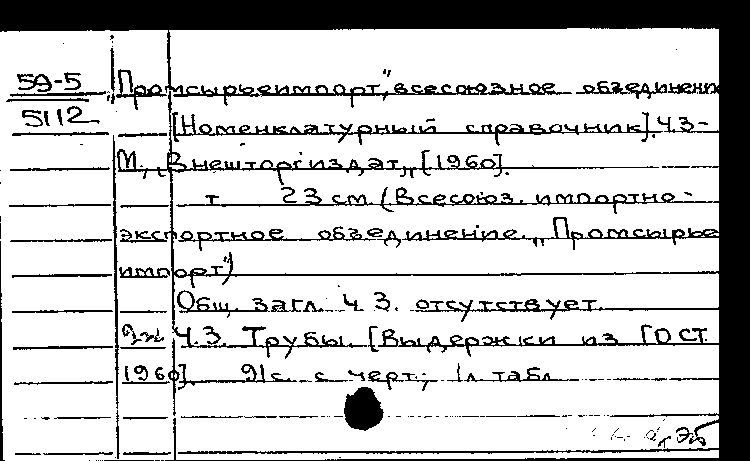 59-5
5112
„Промсырьеимпорт", всесоюзное объединени
[Номенклатурный справочник]. Ч.3-
М., „Внешторгиздат", [1960].
т. 23 см. (Всесоюз. импортно-
экспортное объединение „Промсырье
импорт")
Общ. загл. ч. 3. отсутствует.
Ч.3. Трубы. [Выдержки из ГОСТ
1960]. 91 с. с черт.; 1 л. табл.